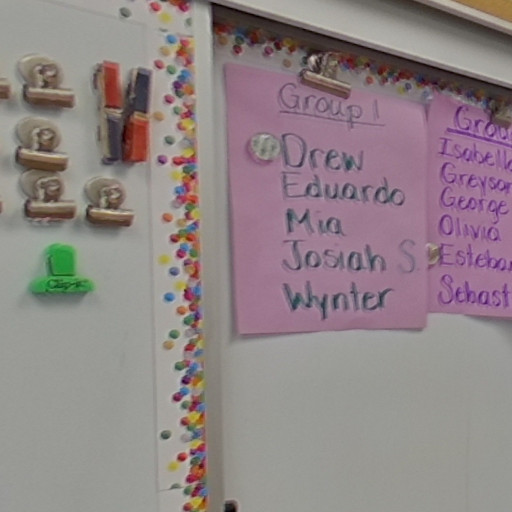 Group 1
Drew
Eduardo
Mia
Josiah S
Wynter
Grou
Isabell
Greyson
George
Olivia
Esteba
Sebast